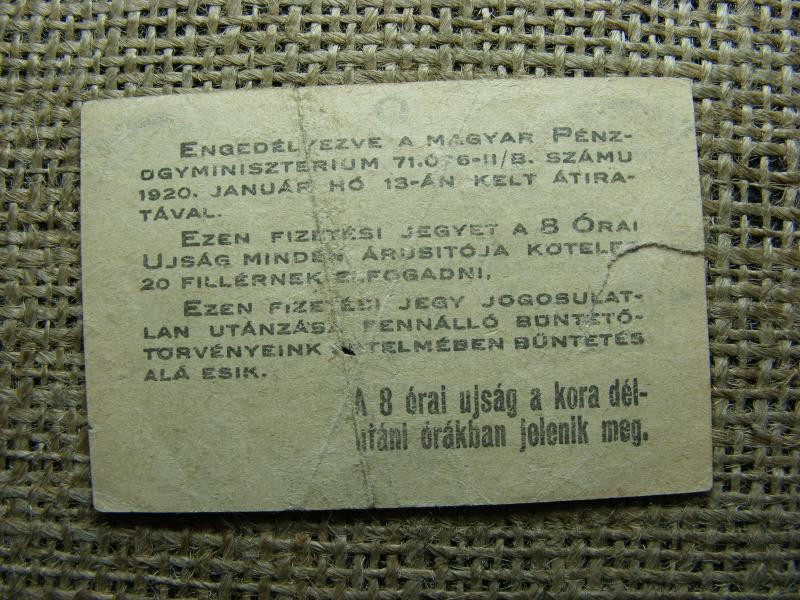 ENGEDÉLYEZVE A MAGYAR PÉNZ-
ÜGYMINISZTERIUM 71.076-II/B. SZÁMU
1920. JANUÁR HÓ 13-ÁN KELT ÁTIRA-
TÁVAL.
EZEN FIZETÉSI JEGYET A 8 ÓRAI
UJSÁG MINDEN ÁRUSITÓJA KÖTELES
20 FILLÉRNEK ELFOGADNI.
EZEN FIZETÉSI JEGY JOGOSULAT-
LAN UTÁNZÁSA FENNÁLLÓ BÜNTETŐ-
TÖRVÉNYEINK ÉRTELMÉBEN BÜNTETÉS
ALÁ ESIK.
A 8 órai ujság a kora dél-
utáni órákban jelenik meg.